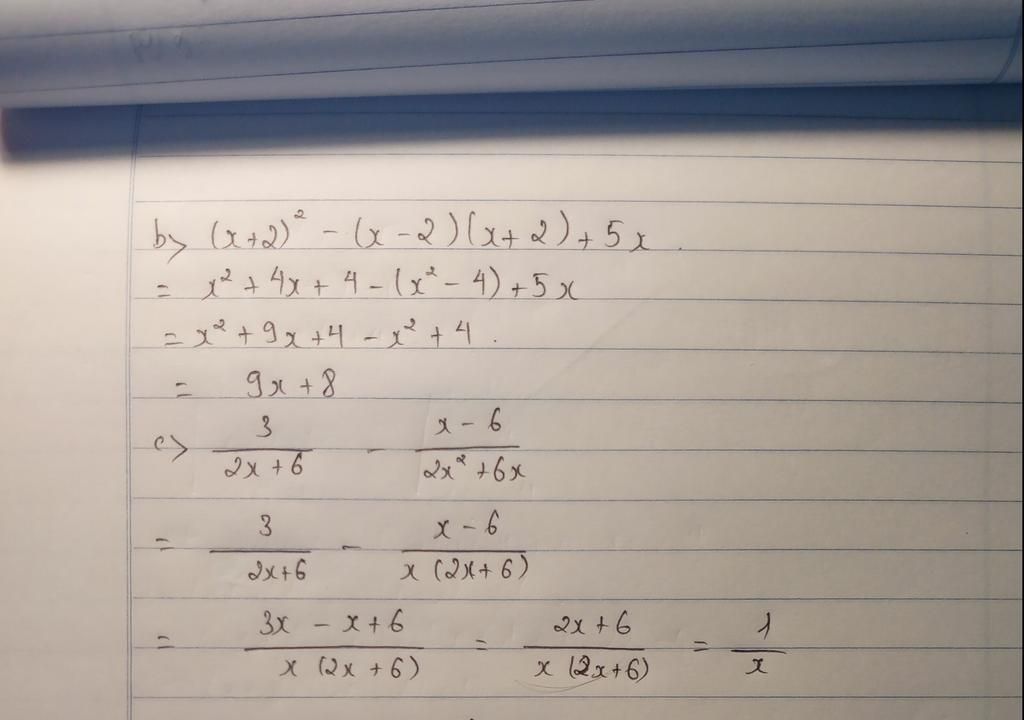 b> (x+2)² - (x-2)(x+2)+5x.
= x²+4x+4-(x²-4)+5x
= x²+9x+4-x²+4.
= 9x+8
c> 3/(2x+6) - (x-6)/(2x²+6x)
= 3/(2x+6) - (x-6)/(x(2x+6))
= (3x-x+6)/(x(2x+6)) = (2x+6)/(x(2x+6)) = 1/x